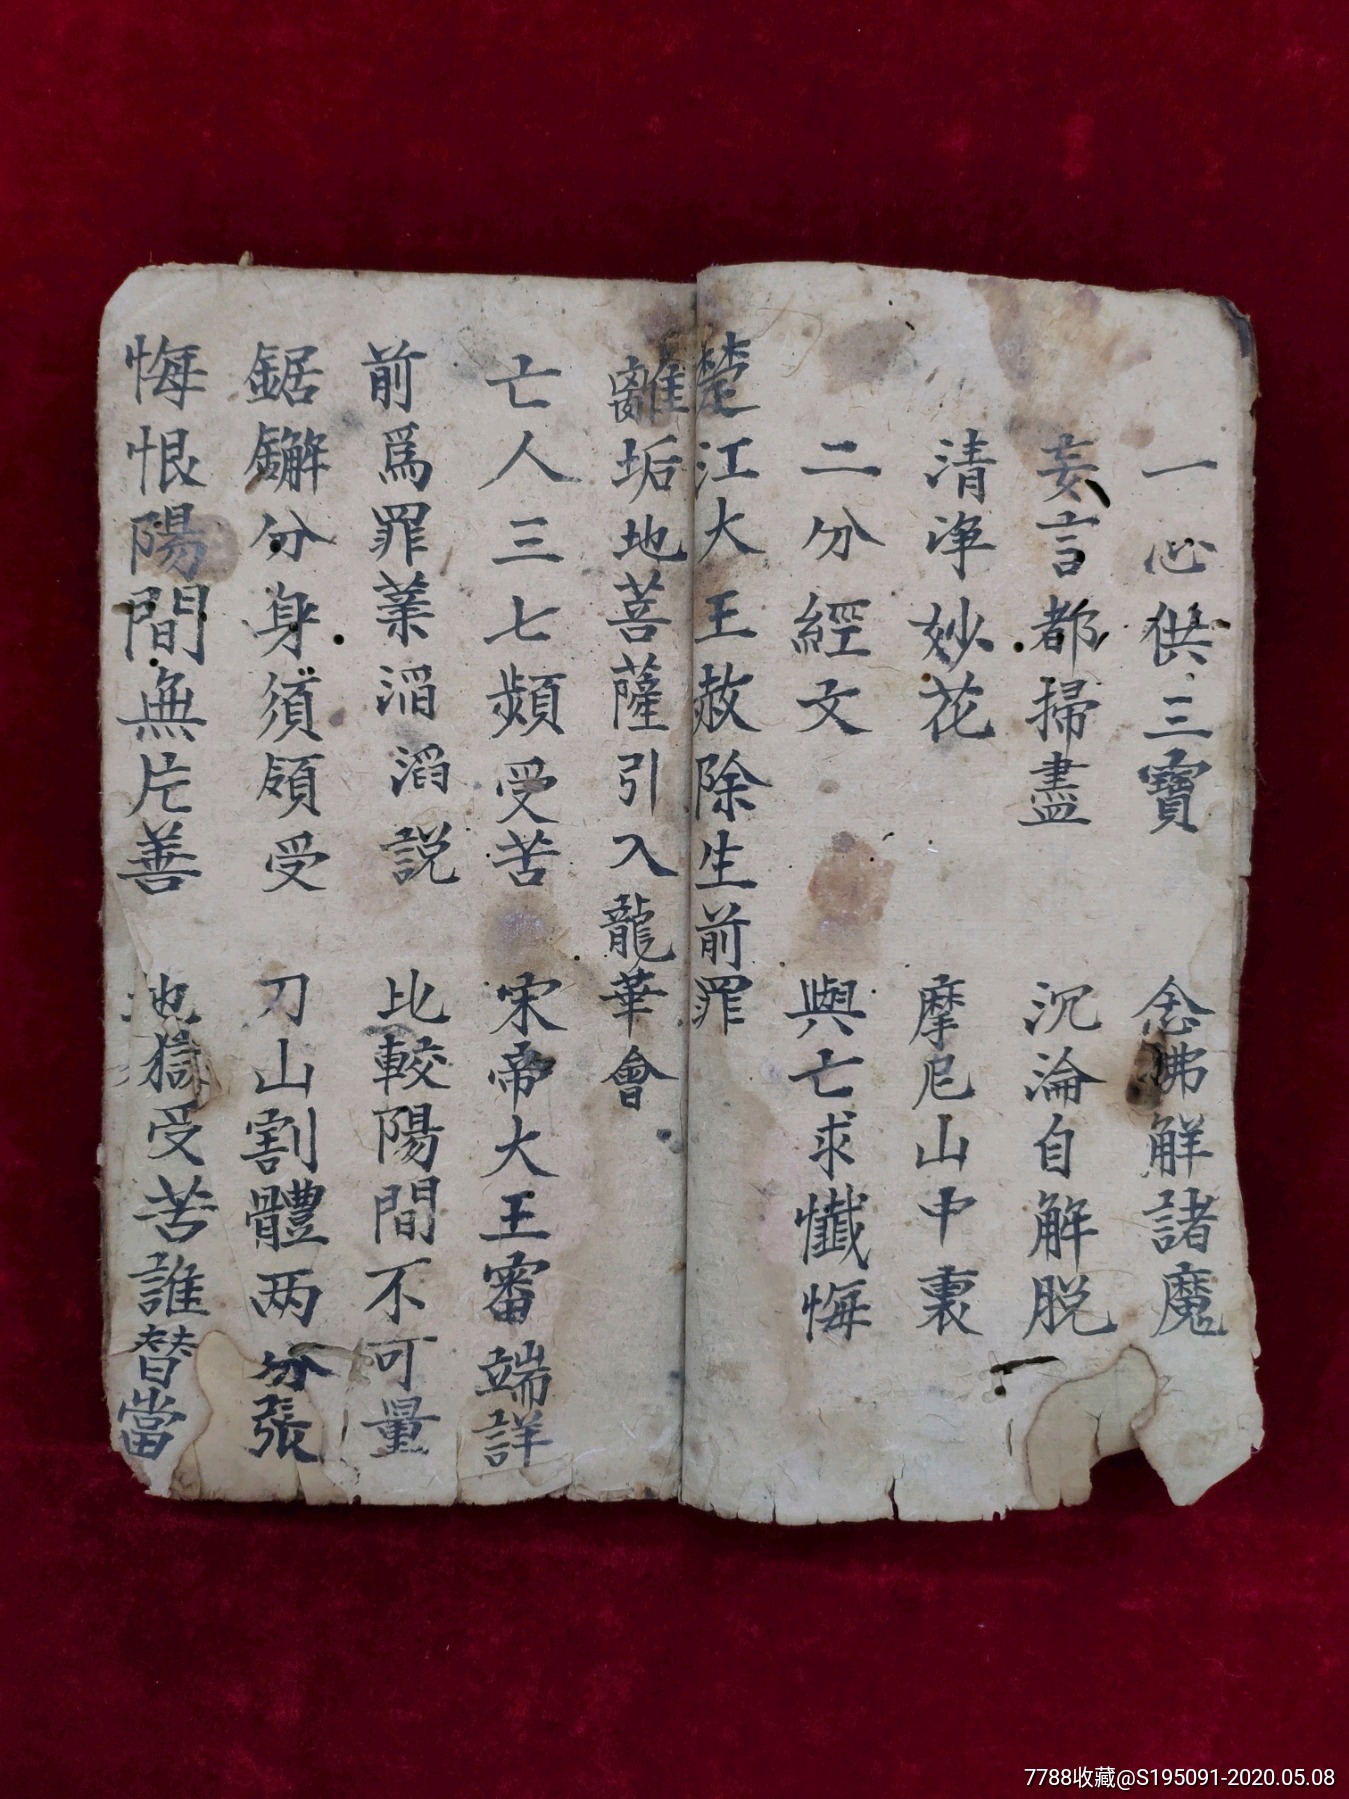 一心供三寶 念佛解諸魔
妄言都掃盡 沉淪自解脱
清净妙花 摩尼山中裏
二分經文 與亡求懺悔
楚江大王赦除生前罪
離垢地菩薩引入龍華會
亡人三七頻受苦 宋帝大王審端詳
前爲罪業滔滔説 比較陽間不可量
鋸解分身須領受 刀山割體两分張
悔恨陽間無片善 地獄受苦誰替當
7788收藏@S195091-2020.05.08